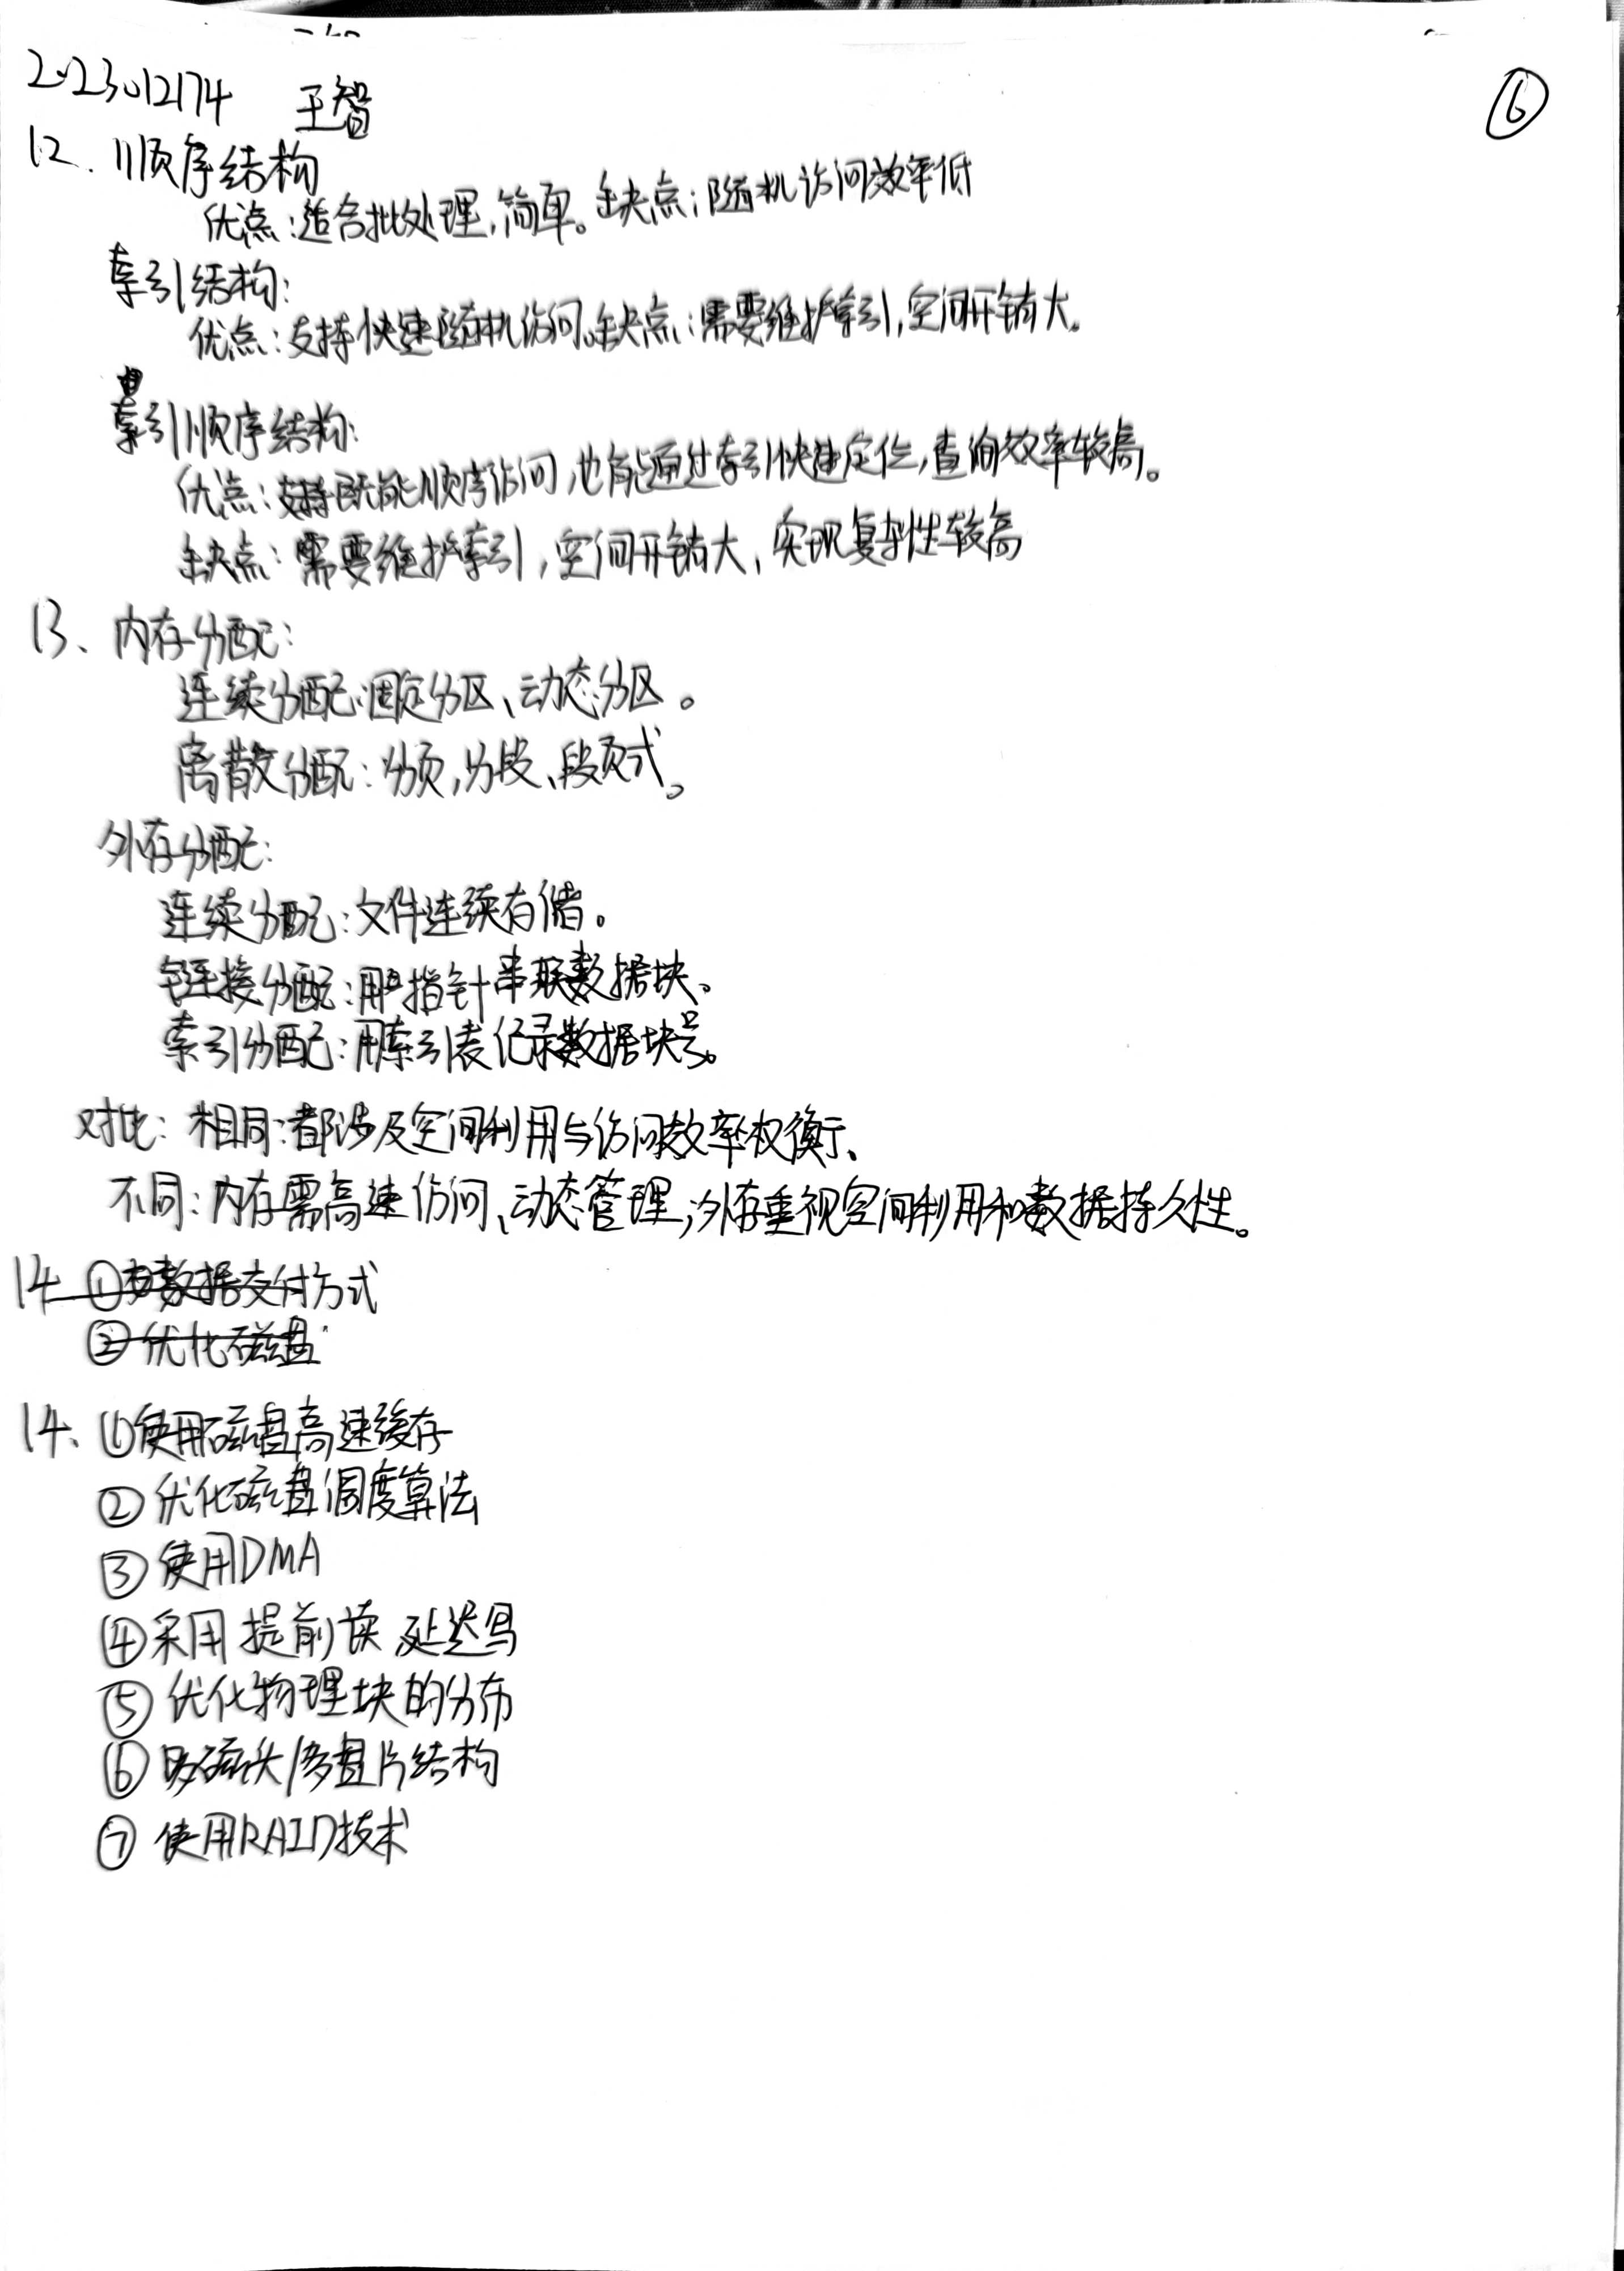 2023012174 王智
⑥
12. 顺序结构
优点:适合批处理,简单。缺点:随机访问效率低
索引结构:
优点:支持快速随机访问。缺点:需要维护索引,空间开销大。
索引顺序结构:
优点:既能顺序访问,也能通过索引快速定位,查询效率较高。
缺点:需要维护索引,空间开销大,实现复杂性较高
13、内存分配:
连续分配:固定分区、动态分区。
离散分配:分页,分段、段页式。
外存分配:
连续分配:文件连续存储。
链接分配:用指针串联数据块。
索引分配:用索引表记录数据块号。
对比:相同:都涉及空间利用与访问效率权衡、
不同:内存需高速访问、动态管理;外存重视空间利用和数据持久性。
14 ①数据交付方式
②优化磁盘
14、①使用磁盘高速缓存
②优化磁盘调度算法
③使用DMA
④采用提前读 延迟写
⑤优化物理块的分布
⑥多磁头/多盘片结构
⑦使用RAID技术